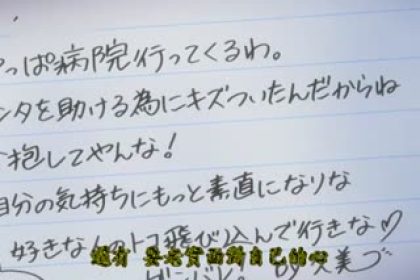 っぱ病院行ってくるわ。
ンタを助ける為にキズついたんだからね
抱してやんな！
自分の気持ちにもっと素直になりな
好きな人のトコ飛び込んで行きな♡
還有 要老實面對自己的心